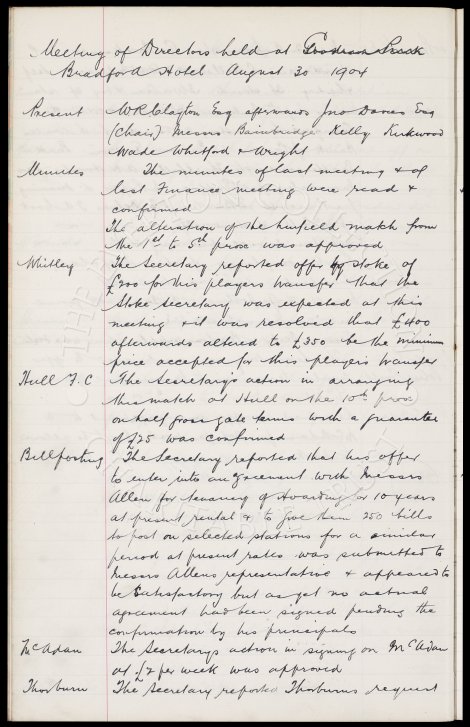 Meeting of Directors held at Goodison Park
Bradford Hotel August 30 1904
Present W R Clayton Esq afterwards Jno Davies Esq
(Chair) Messrs Bainbridge Kelly Kirkwood
Wade Whitford & Wright
Minutes The minutes of last meeting & of
last Finance meeting were read &
confirmed
The alteration of the field match from
the 1st to 5th prox was approved
Whitley The Secretary reported offer by Stoke of
£200 for this players transfer that the
Stoke Secretary was expected at this
meeting & it was resolved that £400
afterwards altered to £350 be the minimum
price accepted for this players transfer
Hull F.C The Secretary's action in arranging
this match at Hull on the 10th prox
on half gross gate terms with a guarantee
of £25 was confirmed
Billposting The Secretary reported that his offer
to enter into an agreement with Messrs
Allen for tenancy of Hoarding for 10 years
at present rental & to give them 250 bills
to post on selected stations for a similar
period at present rates was submitted to
Messrs Allens representative & appeared to
be satisfactory but as yet no actual
agreement had been signed pending the
confirmation by his principals
McAdam The Secretarys action in signing on McAdam
at £2 per week was approved
Thorburn The Secretary reported Thorburns request